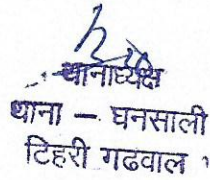 थानाध्यक्ष
थाना - घनसाली
टिहरी गढवाल